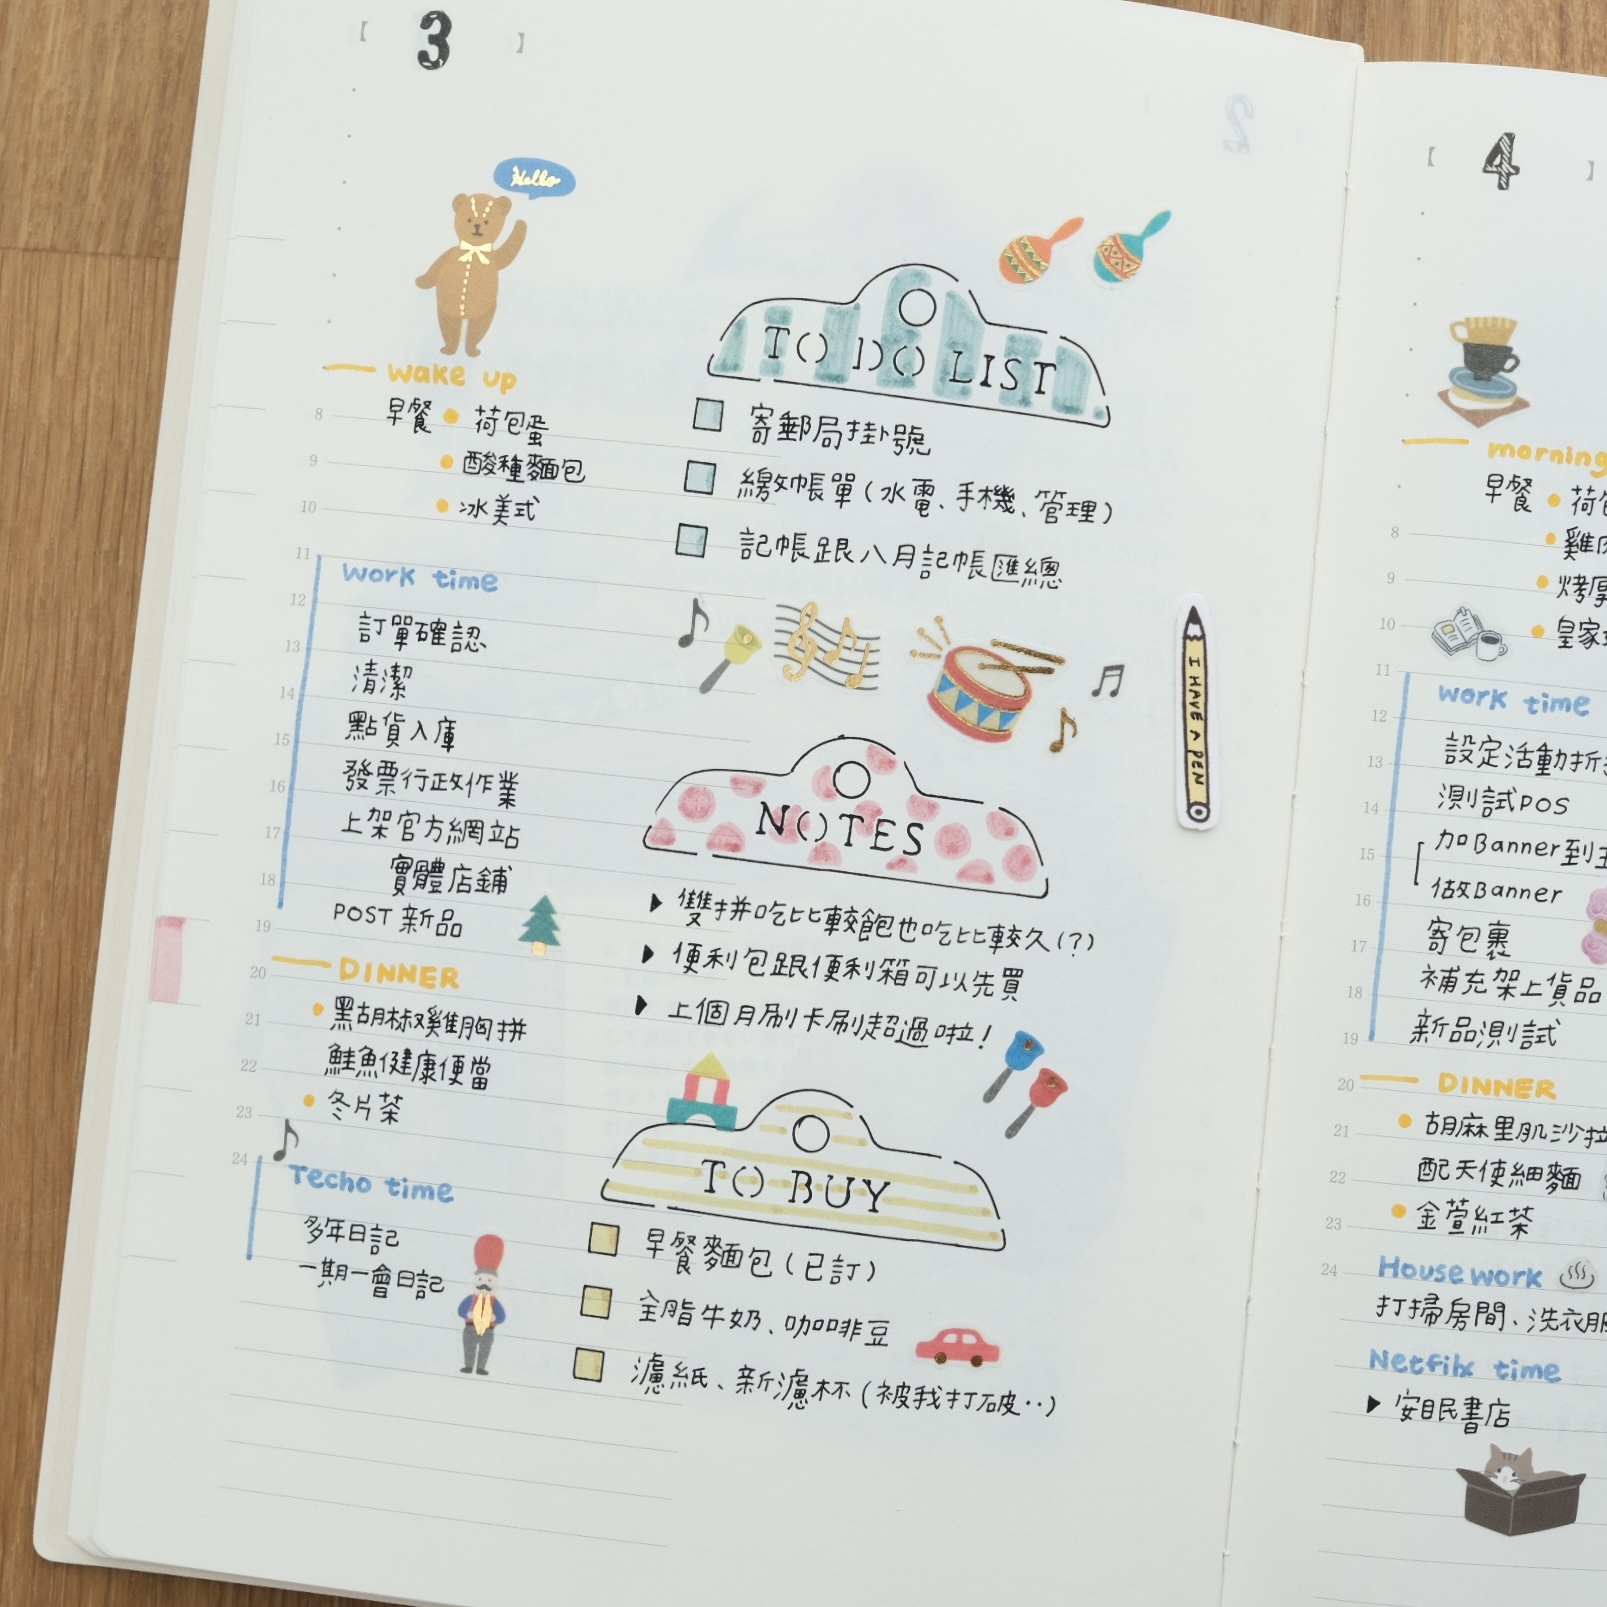 【 3 】
Hello
wake up
8
早餐 • 荷包蛋
9
• 酸種麵包
10
• 冰美式
11
work time
12
訂單確認
13
清潔
14
點貨入庫
15
發票行政作業
16
上架官方網站
17
實體店鋪
18
POST 新品
19
20
DINNER
• 黑胡椒雞胸拼
21
鮭魚健康便當
22
• 冬片茶
23
24
Techo time
多年日記
一期一會日記
TO DO LIST
寄郵局掛號
繳帳單(水電、手機、管理)
記帳跟八月記帳匯總
I HAVE A PEN
NOTES
▶ 雙拼吃比較飽也吃比較久(?)
▶ 便利包跟便利箱可以先買
▶ 上個月刷卡刷超過啦!
TO BUY
早餐麵包(已訂)
全脂牛奶、咖啡豆
濾紙、新濾杯(被我打破··)
【 4 】
morning
早餐 • 荷包
8
• 雞肉
9
• 烤厚
10
• 皇家
11
work time
12
設定活動折
13
測試POS
14
加Banner到主
15
做Banner
16
寄包裹
17
補充架上貨品
18
新品測試
19
20
DINNER
• 胡麻里肌沙拉
21
配天使細麵
22
• 金萱紅茶
23
24
House work
打掃房間、洗衣服
Netfilx time
▶ 安眠書店